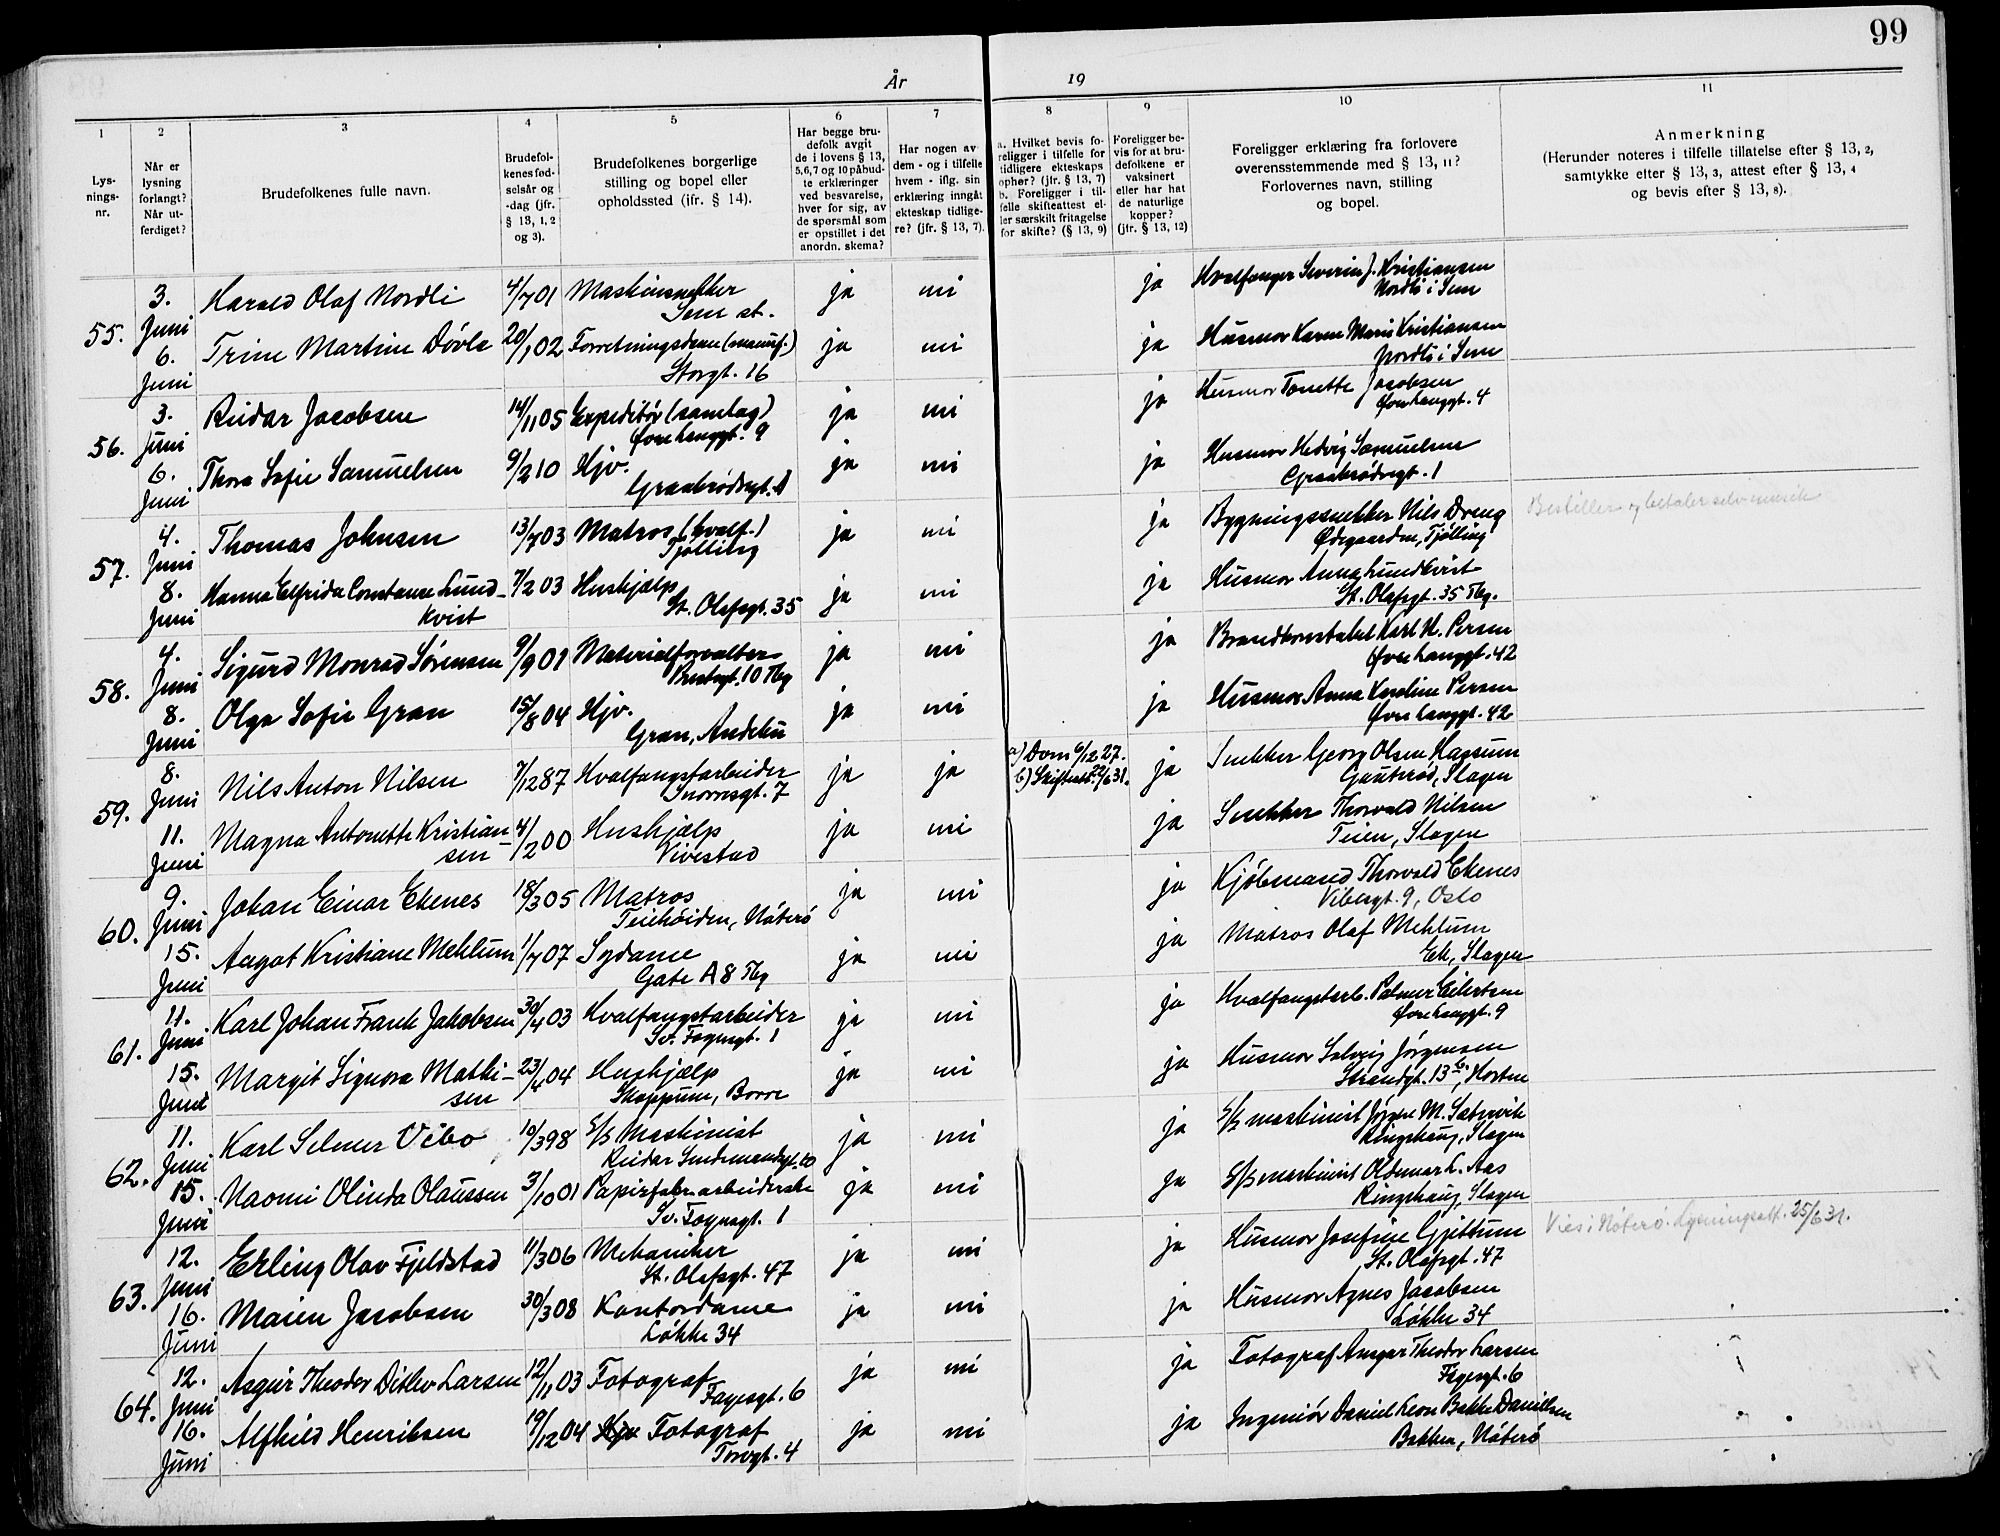 99
År 19
1 2 3 4 5 6 7 8 9 10 11
Lys-
nings-
nr.
Når er
lysning
forlangt?
Når ut-
ferdiget?
Brudefolkenes fulle navn.
Brudefol-
kenes fød-
selsår og
-dag (jfr.
§ 13, 1, 2
og 3).
Brudefolkenes borgerlige
stilling og bopel eller
opholdssted (ifr. § 14).
Har begge bru-
defolk avgit
de i lovens § 13,
5,6,7 og 10 påbud-
te erklæringer
ved besvarelse,
hver for sig, av
de spørsmål som
er opstillet i det
anordn. skema?
Har nogen av
dem - og i tilfelle
hvem - iflg. sin
erklæring inngåt
ekteskap tidlige-
re? (jfr. § 13, 7).
a. Hvilket bevis fo-
religger i tilfelle for
tidligere ekteskaps
ophør? (jfr. § 13, 7)
b. Foreligger i til-
felle skifteattest el-
ler særskilt fritagelse
for skifte? (§ 13, 9)
Foreligger be-
vis for at bru-
defolkene er
vaksinert
eller har hat
de naturlige
kopper?
(jfr. § 13, 12)
Foreligger erklæring fra forlovere
overensstemmende med § 13, 11?
Forlovernes navn, stilling
og bopel.
Anmerkning
(Herunder noteres i tilfelle tillatelse efter § 13, 2,
samtykke efter § 13, 3, attest efter § 13, 4
og bevis efter § 13, 8).
55.
3. Juni
Harald Olaf Nordli 4/7 01 Maskinsnekker ja nei ja Hvalfanger Severin J. Kristiansen
Sem st. Nordli i Sem
6. Juni
Trine Martine Døvle 20/1 02 Forretningsdame (manuf.) ja nei ja Husmor Karen Marie Kristiansen
Storgt. 16 Nordli i Sem
56.
3. Juni
Reidar Jacobsen 14/11 05 Expeditør (samlag) ja nei ja Husmor Tonette Jacobsen
Øvre Langgt. 9 Øvre Langgt. 4
6. Juni
Thora Sofie Samuelsen 9/2 10 Hjv. ja nei ja Husmor Hedvig Samuelsen
Graabrødregt. 1 Graabrødregt. 1
57.
4. Juni
Thomas Johnsen 13/7 03 Matros (hvalf.) ja nei ja Bygningssnekker Nils Dreng Bestiller og betaler selv musik
Tjølling Ødegaarden, Tjølling
8. Juni
Hanna Elfrida Constanse Lund- 7/2 03 Hushjælp ja nei ja Husmor Anna Lundkvist
kvist St. Olafsgt. 35 St. Olafsgt. 35 Tbg.
58.
4. Juni
Sigurd Monrad Sørensen 9/9 01 Materialforvalter ja nei ja Brandkonstabel Karl H. Persen
Prestegt. 10 Tbg Øvre Langgt. 42
8. Juni
Olga Sofie Gran 15/8 04 Hjv. ja nei ja Husmor Anna Karoline Persen
Gran, Andebu Øvre Langgt. 42
59.
8. Juni
Nils Anton Nilsen 7/12 87 Hvalfangstarbeider ja ja a) Dom 6/12 27. ja Snekker Georg Olsen Hagsum
Snorresgt. 7 b) Skifteatt. 22/6 31. Gauterød, Slagen
11. Juni
Magna Antonette Kristian- 4/2 00 Hushjælp ja nei ja Snekker Thorvald Nilsen
sen Vivestad Teien, Slagen
60.
9. Juni
Johan Einar Ekenes 18/3 05 Matros ja nei ja Kjøbmand Thorvald Ekenes
Teiehøiden, Nøterø Vibesgt. 9, Oslo
15. Juni
Aagot Kristiane Mehlum 1/7 07 Sydame ja nei ja Matros Olaf Mehlum
Gate A 8 Tbg Ek, Slagen
61.
11. Juni
Karl Johan Frank Jakobsen 30/4 03 Hvalfangstarbeider ja nei ja Hvalfangstarb. Palmer Eilertsen
Sv. Foynsgt. 1 Øvre Langgt. 9
15. Juni
Margit Signora Mathi- 23/4 04 Hushjælp ja nei ja Husmor Solveig Jørgensen
sen Skoppum, Borre Strandgt. 13 b, Horten
62.
11. Juni
Karl Selmer Vibo 10/3 98 S/S Maskinist ja nei ja S/S maskinist Jørgen M. Sætrevik
Reidar Sendemandsgt. 10 Ringshaug, Slagen
15. Juni
Naomi Olinda Olaussen 3/10 01 Papirfabr. arbeiderske ja nei ja S/S maskinist Oldemar L. Aas
Sv. Foynsgt. 1 Ringshaug, Slagen
63.
12. Juni
Erling Olav Fjeldstad 11/3 06 Mekaniker ja nei ja Husmor Josefine Gjettum Vies i Nøterø. Lysningsatt. 25/6 31.
St. Olafsgt. 47 St. Olafsgt. 47
16. Juni
Maien Jacobsen 30/3 08 Kontordame ja nei ja Husmor Agnes Jacobsen
Løkke 34 Løkke 34
64.
12. Juni
Asgeir Theodor Ditlev Larsen 12/11 03 Fotograf ja nei ja Fotograf Ansgar Theodor Larsen
Fayesgt. 6 Fayesgt. 6
16. Juni
Alfhild Henriksen 19/12 04 Hjv Fotograf ja nei ja Ingeniør Daniel Leon Bakke Danielsen
Torvgt. 4 Bakken, Nøterø